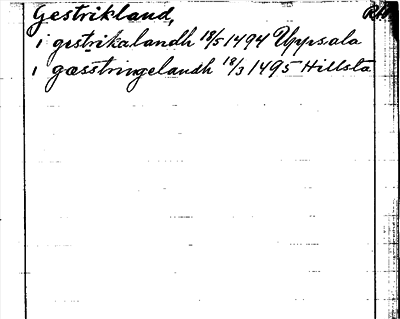 Gestrikland, RA
i gestrikalandh 18/5 1494 Uppsala
i gæsstringelandh 18/3 1495 Hillsta